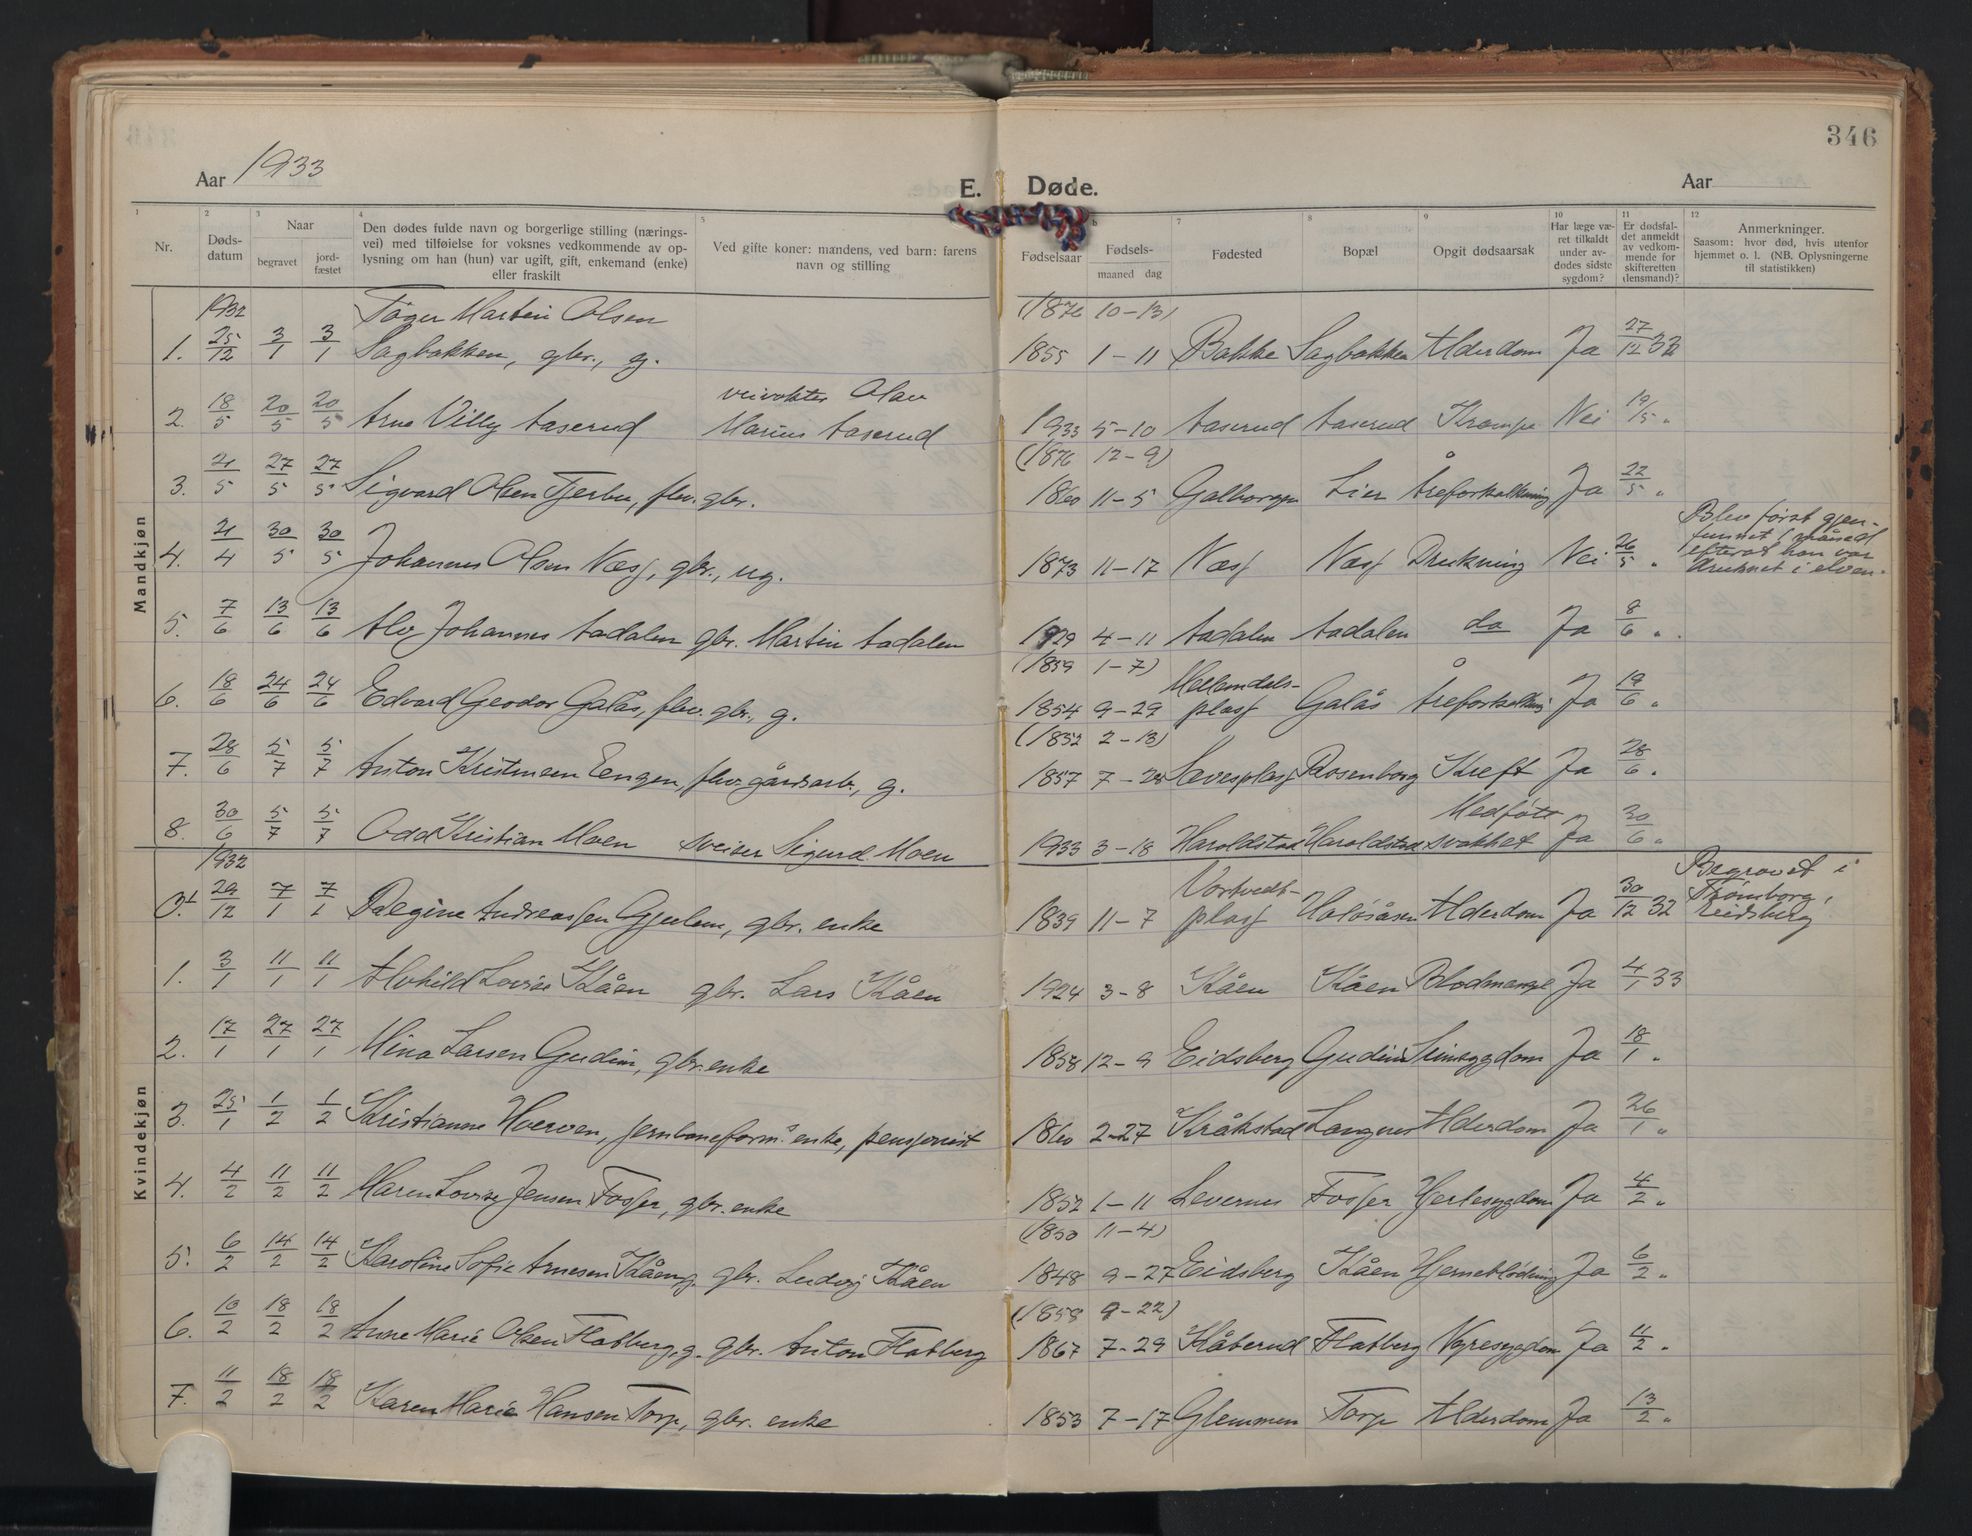 346
Aar 1933
E. Døde.
Aar
Nr.
Døds-
datum
Naar
begravet
jord-
fæstet
Den dødes fulde navn og borgerlige stilling (nærings-
vei) med tilføielse for voksnes vedkommende av op-
lysning om han (hun) var ugift, gift, enkemand (enke)
eller fraskilt
Ved gifte koner: mandens, ved barn: farens
navn og stilling
Fødselsaar
Fødsels-
maaned dag
Fødested
Bopæl
Opgit dødsaarsak
Har læge væ-
ret tilkaldt
under av-
dødes sidste
sygdom?
Er dødsfal-
det anmeldt
av vedkom-
mende for
skifteretten
(lensmand)?
Anmerkninger.
Saasom: hvor død, hvis utenfor
hjemmet o. l. (NB. Oplysningerne
til statistikken)
Mandkjøn
1932 Martin Olsen (1876 10-13)
1. 25/12 3/1 3/1 Sagbakken, gbr., g. 1855 1-11 Bakke Sagbakken Alderdom Ja 27/12 32
veivokter Olav
2. 18/5 20/5 20/5 Arne Villy Aaserud Marius Aaserud 1933 5-10 Aaserud Aaserud Krampe Nei 19/5 "
(1876 12-9)
3. 21/5 27/5 27/5 Sigvard Olsen, flv. gbr. 1860 11-5 Lier Åreforkalkning Ja 22/5 "
Blev først gjen-
funnet 1 måned
efterat han var
druknet i elven.
4. 21/4 30/5 30/5 Johannes Olsen Næss, gbr., ug. 1873 11-17 Næss Næss Drukning Nei 26/5 "
5. 7/6 13/6 13/6 Alv Johannes Aadalen gbr. Martin Aadalen 1929 4-11 Aadalen Aadalen do Ja 8/6 "
(1859 1-7)
6. 18/6 24/6 24/6 Edvard Geodor Galås, flv. gbr., g. 1854 9-29 Mellemdals-
plass Galås Åreforkalkning Ja 19/6 "
(1852 2-13)
7. 28/6 5/7 5/7 Anton Kristinsen Engen, flv. gårdsarb., g. 1857 7-28 Rosenborg Kreft Ja 28/6 "
8. 30/6 5/7 5/7 Odd Kristian Moen sveiser Sigurd Moen 1933 3-18 Haroldstad Haroldstad Medfødt
svakhet Ja 30/6 "
Kvindekjøn
1932
29/12 7/1 7/1 Regine Andreassen Gjulem, gbr. enke 1839 11-7 Vortvedt-
plass Alderdom Ja 30/12 32 Begravet i
Trømborg,
Eidsberg
1. 3/1 11/1 11/1 Alvhild Lovise Kåen gbr. Lars Kåen 1924 3-8 Kåen Kåen Blodmangel Ja 4/1 33
2. 17/1 27/1 27/1 Mina Larsen Gudim, gbr. enke 1858 12-9 Eidsberg Gudim Ja 18/1 "
3. 25/1 1/2 1/2 Kristianne Hverven, jernbaneform. enke, pensjonist 1860 2-27 Kråkstad Langnes Alderdom Ja 26/1 "
4. 4/2 11/2 11/2 Maren Lovise Jensen Fosser, gbr. enke 1852 1-11 Levernes Fosser Hjertesygdom Ja 4/2 "
(1850 11-4)
5. 6/2 14/2 14/2 Karoline Sofie Arnesen Kåen g. gbr. Ludvig Kåen 1848 9-27 Eidsberg Kåen Hjerneblødning Ja 6/2 "
(1858 9-22)
6. 10/2 18/2 18/2 Anne Marie Olsen Flatberg, g. gbr. Anton Flatberg 1867 7-29 Kåterud Flatberg Nyresygdom Ja 11/2 "
7. 11/2 18/2 18/2 Karen Marie Hansen Torp, gbr. enke 1853 7-17 Glemmen Torp Alderdom Ja 13/2 "